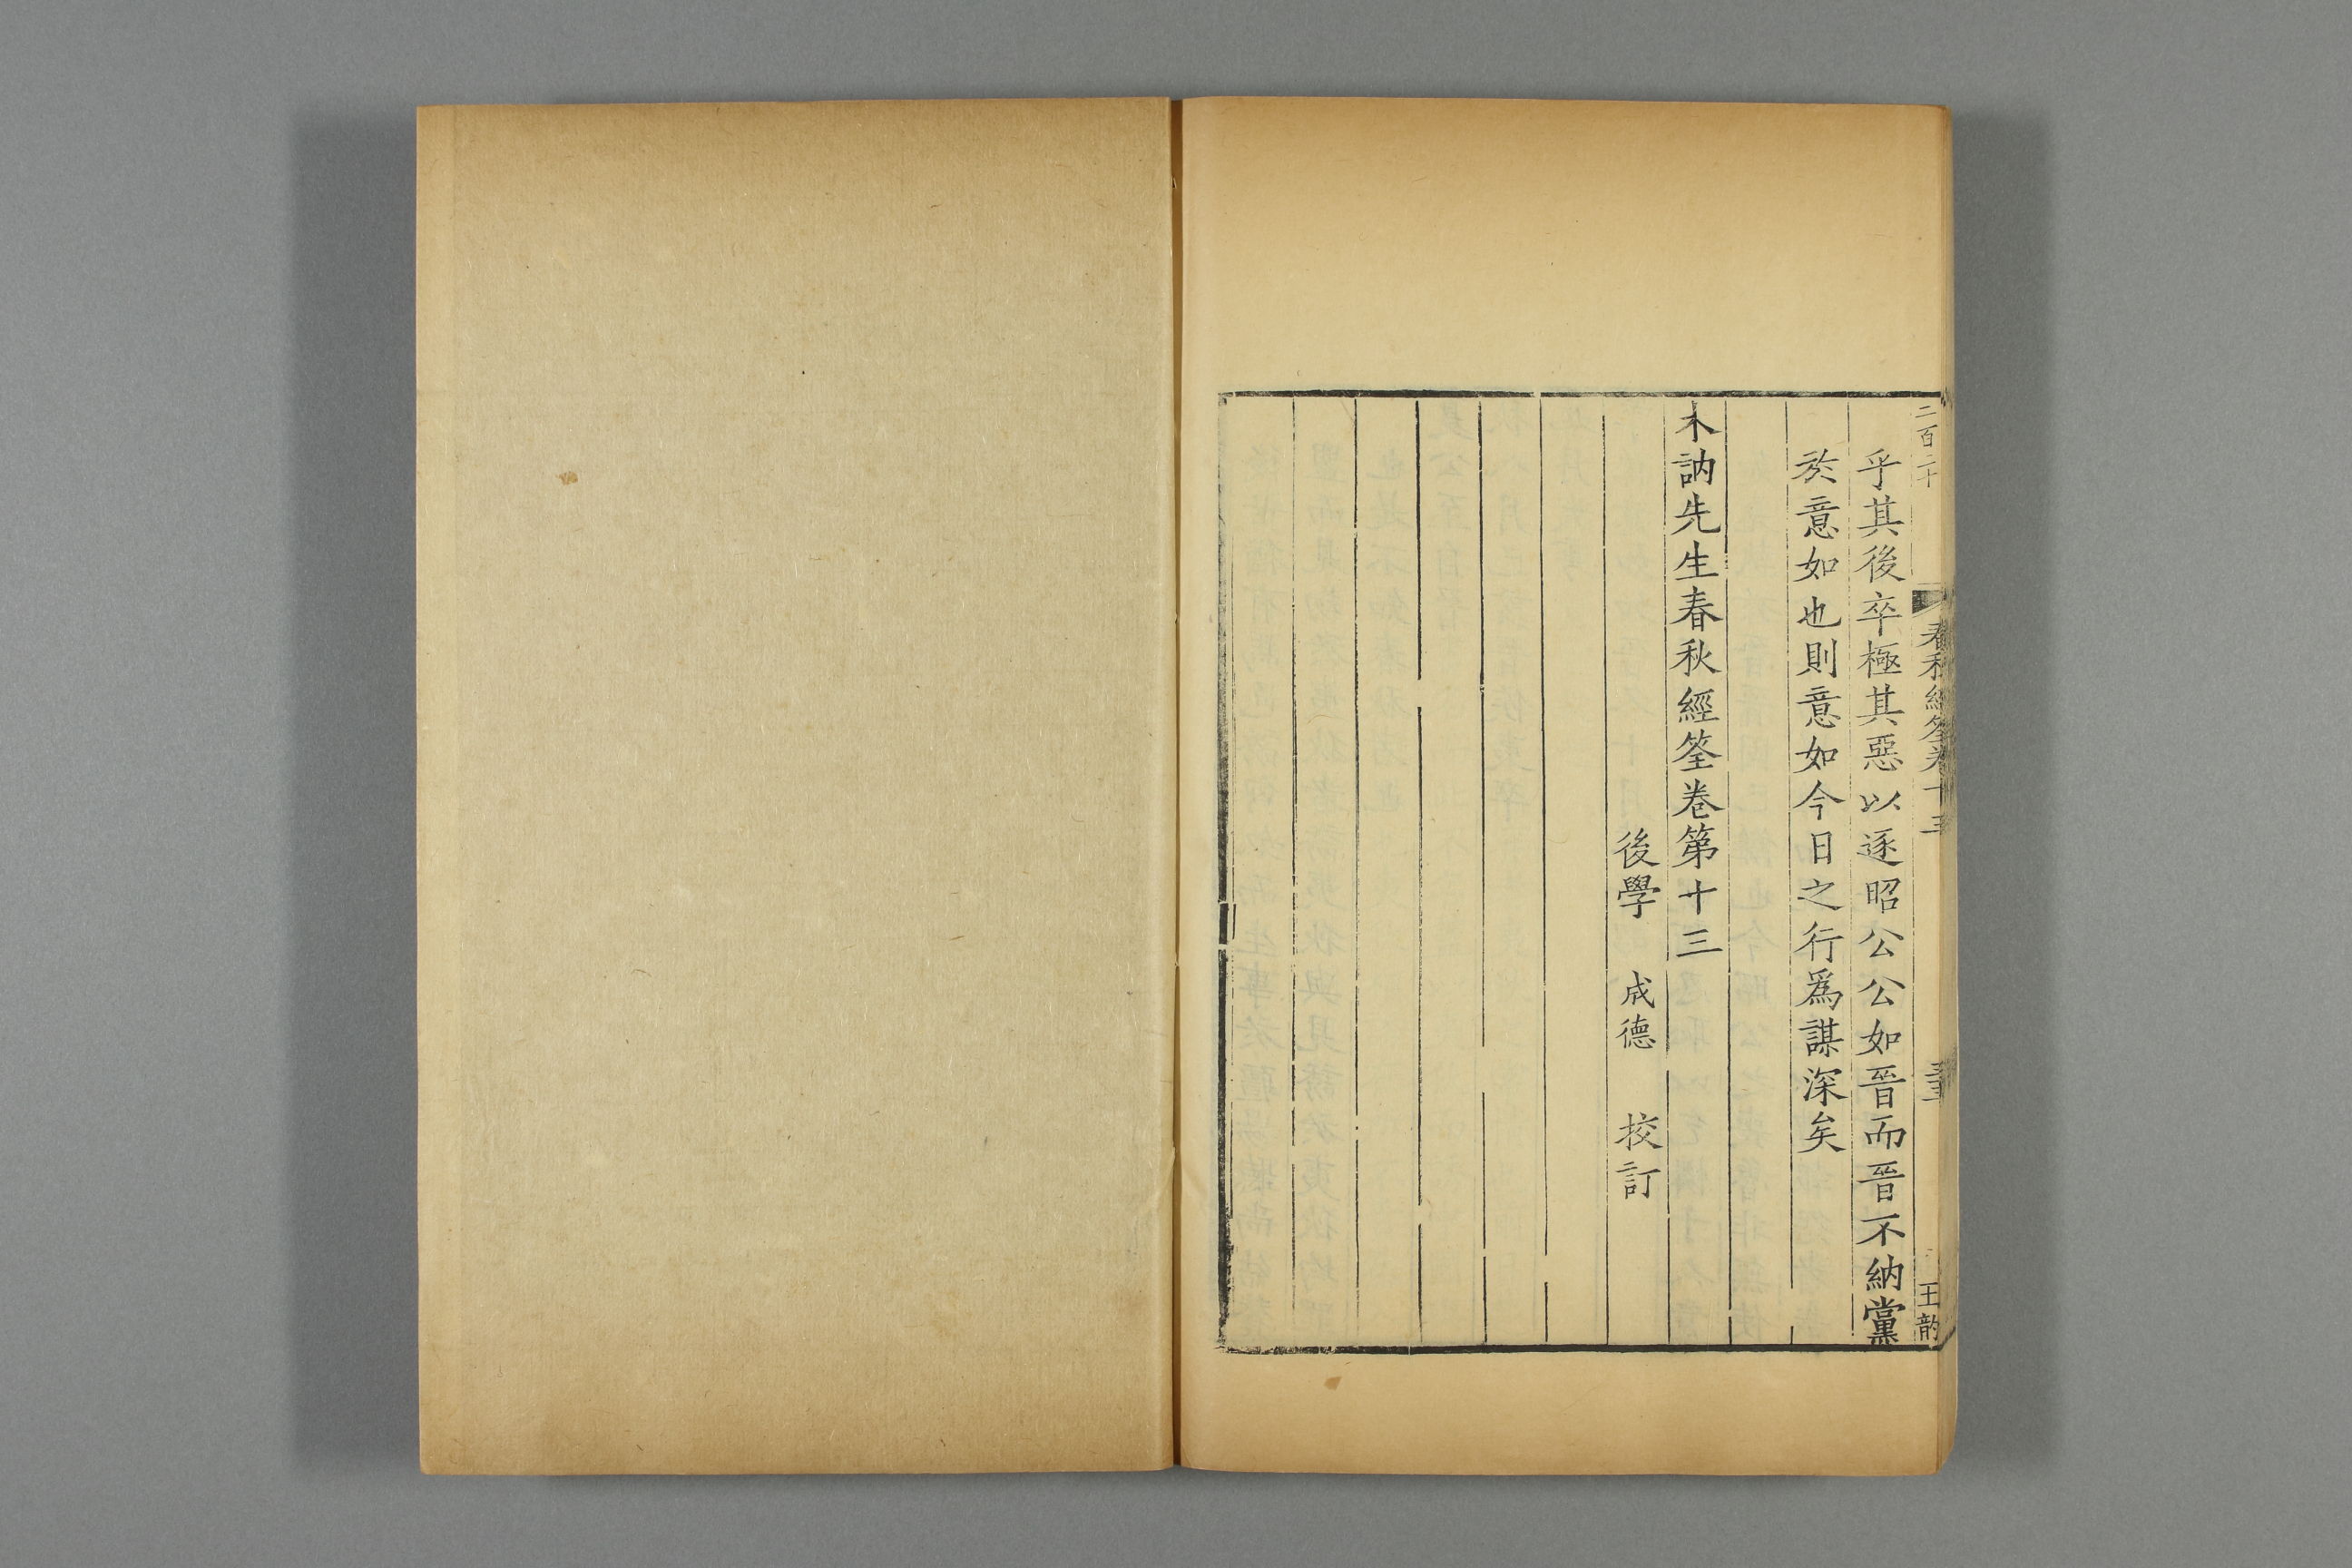 二百二十
春秋經筌卷十三
王韵
乎其後卒極其惡以逐昭公公如晉而晉不納黨
於意如也則意如今日之行爲謀深矣
木訥先生春秋經筌卷第十三
後學 成德 校訂